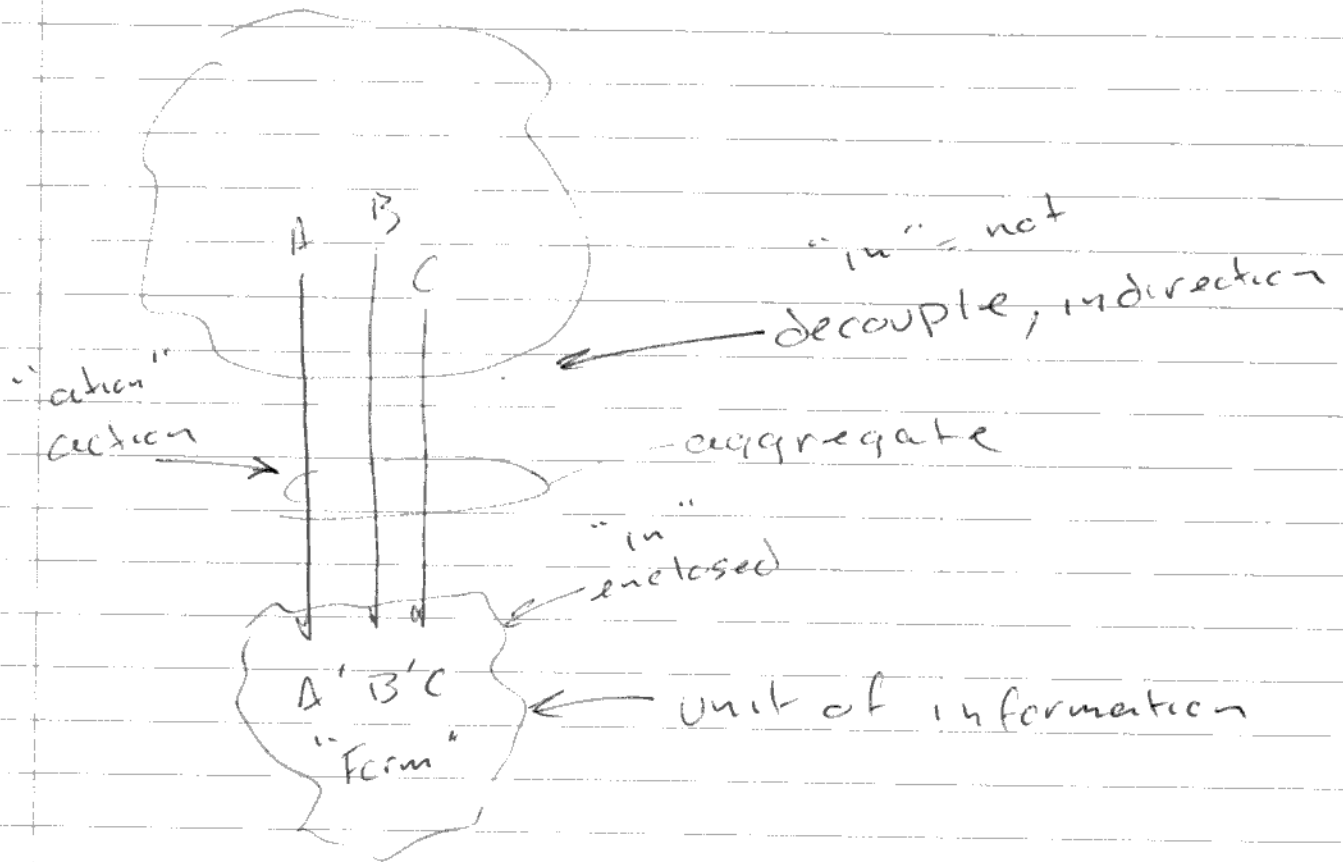 A
B
C
"in" = not
decouple, indirection
"ation"
action
aggregate
"in"
enclosed
A' B' C
"Form"
unit of information